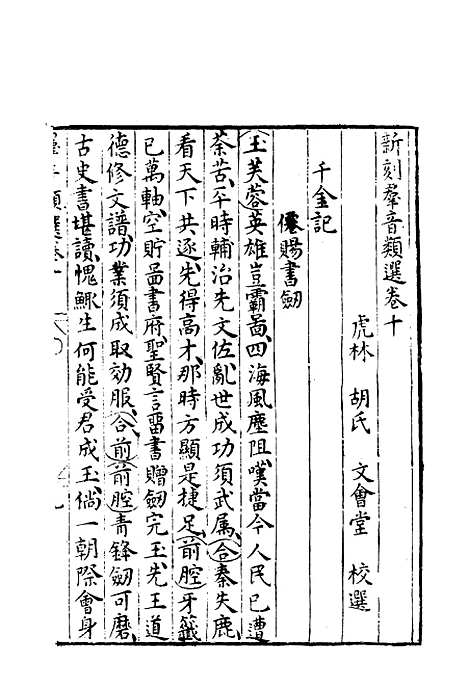 新刻羣音類選卷十
虎林 胡氏 文會堂 校選
千金記
僊賜書劒
玉芙蓉英雄豈霸啚四海風塵阻嘆當今人民已遭
荼苦平時輔治先文佐亂世成功須武属合秦失鹿
看天下共逐先得高才那時方顯是捷足前腔牙籤
已萬軸空貯啚書府聖賢言畱書贈劒完玉先王道
德修文譜功業須成取効服合前前腔青鋒劒可磨
古史書堪讀愧鯫生何能受君成玉倘一朝際會身